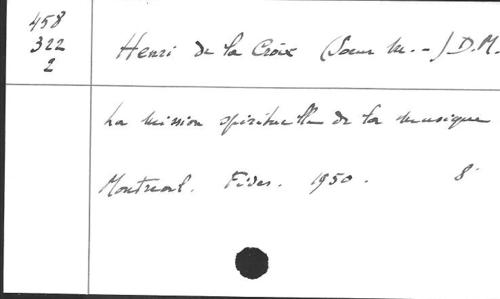 458
322
2
Henri de la Croix (Soeur M. -) D.M.
La mission spirituelle de la musique
Montreal. Fides. 1950. 8°